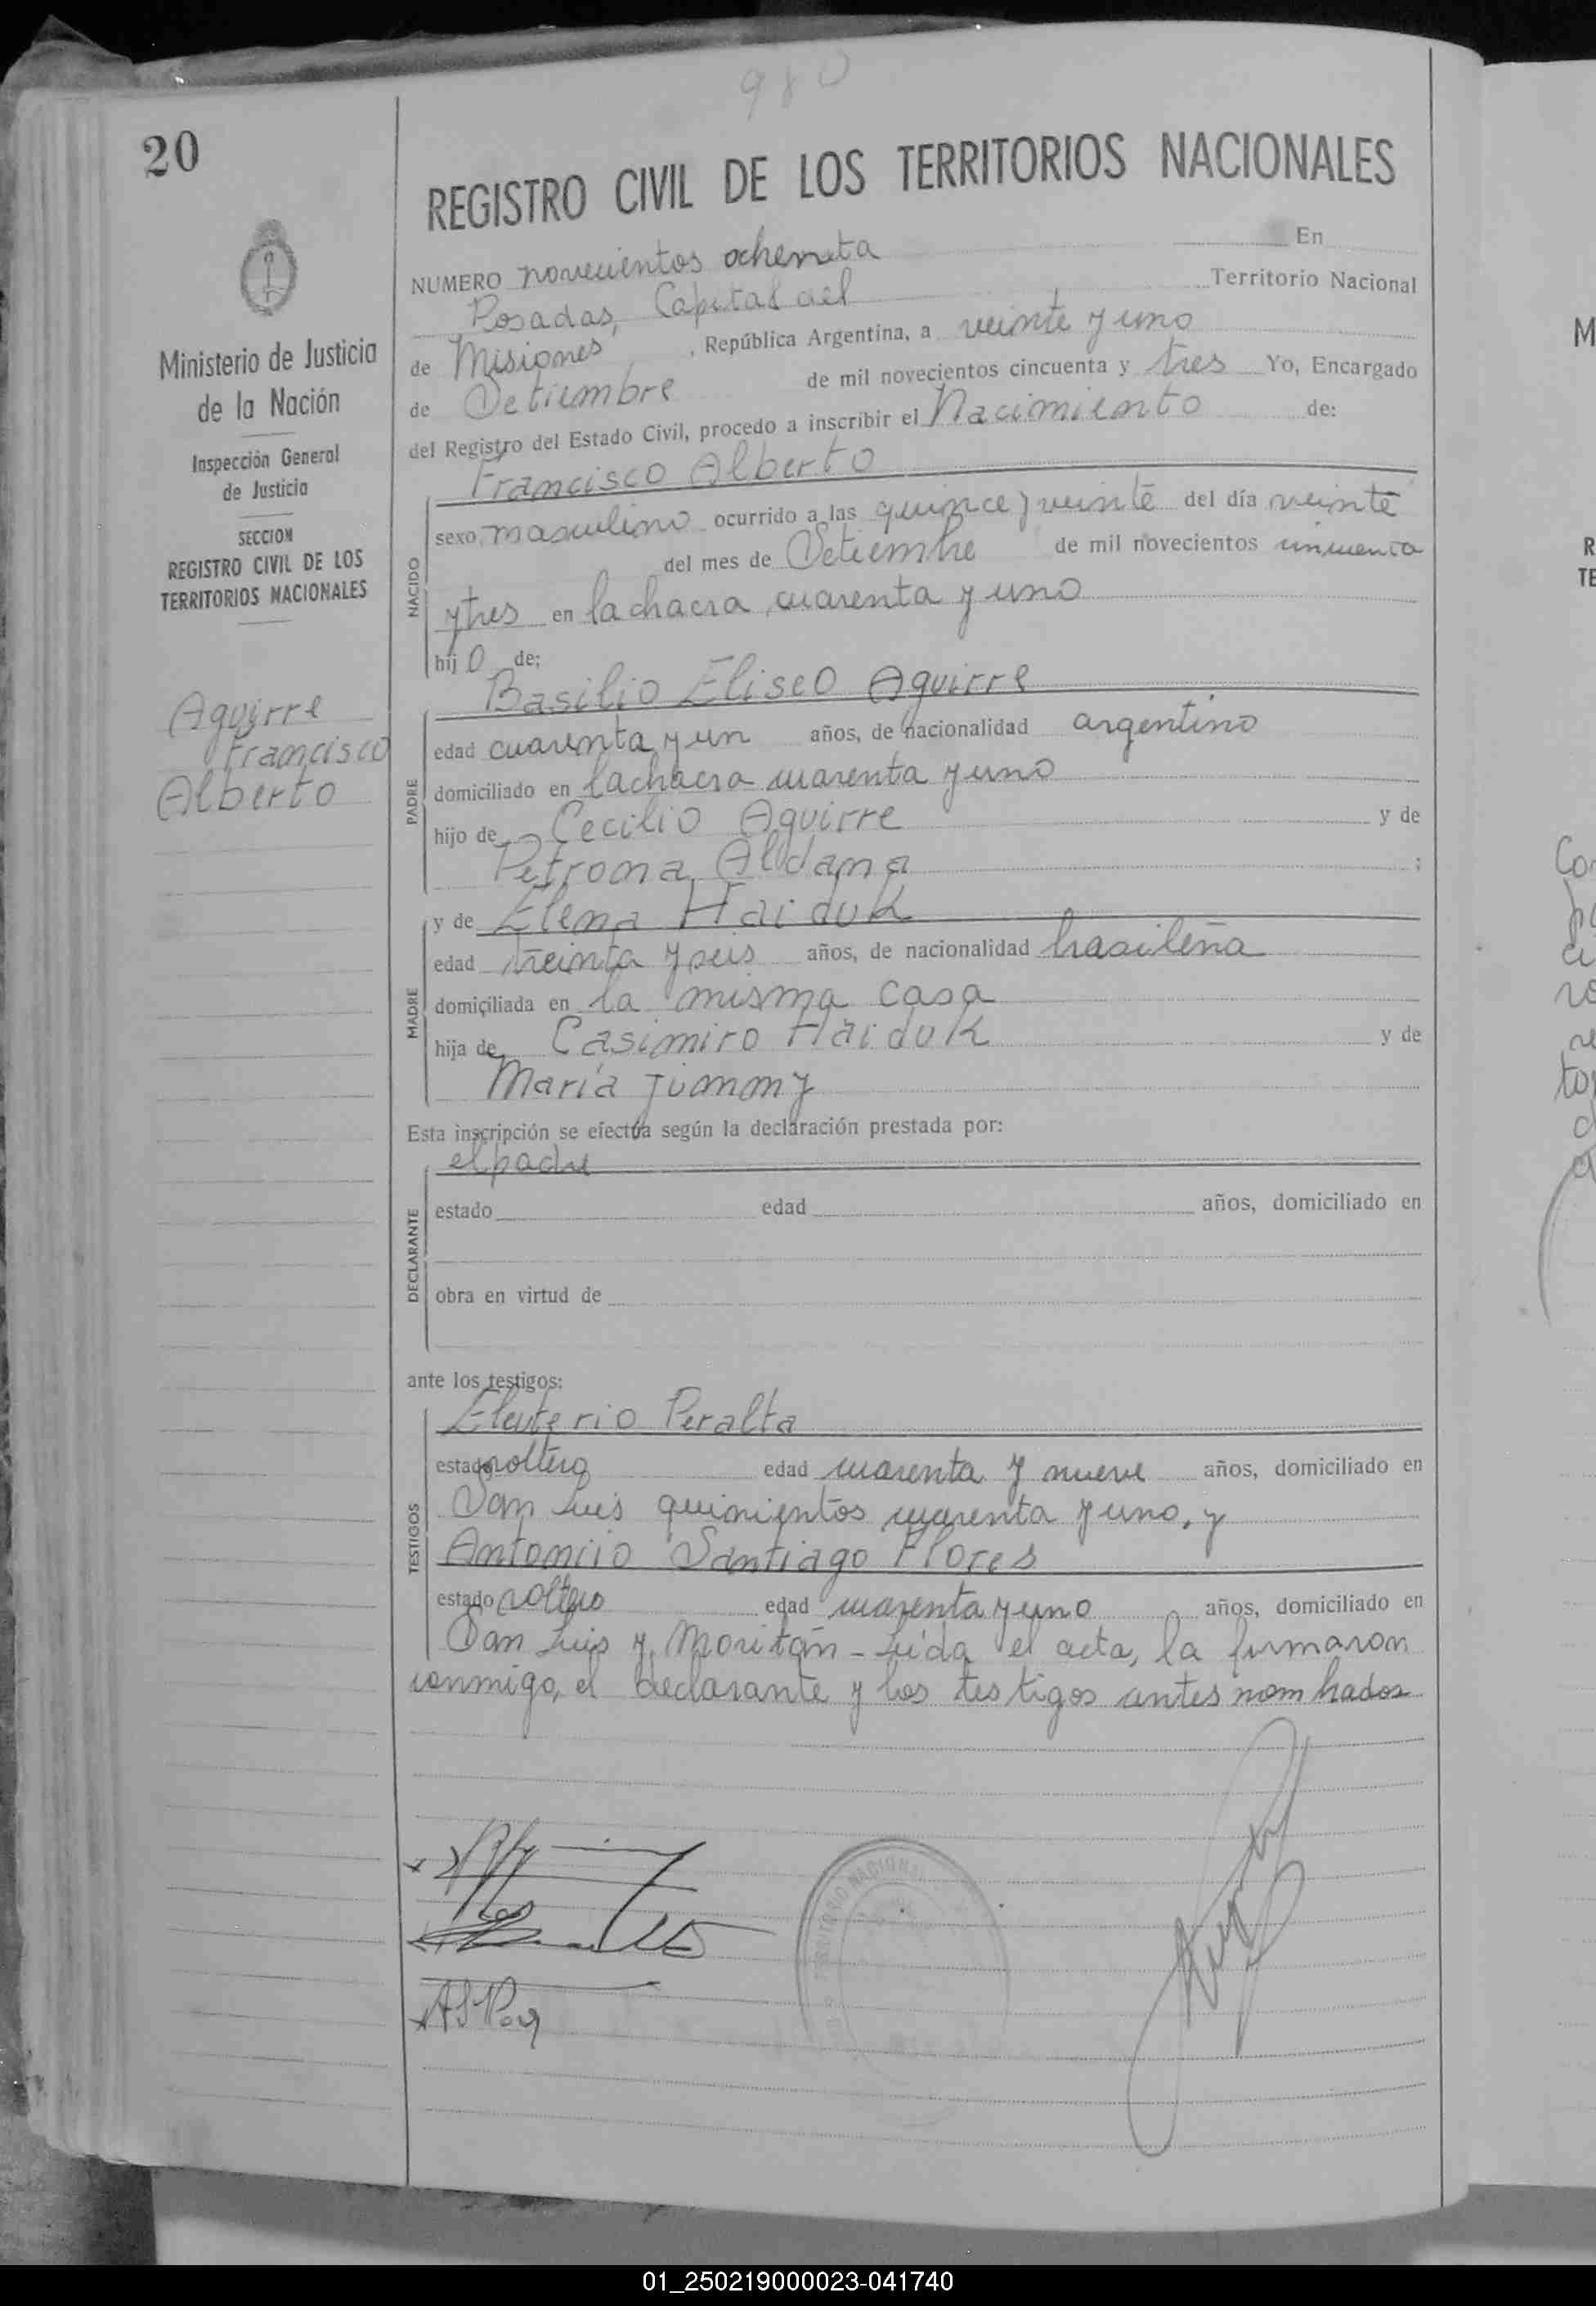 980
20
REGISTRO CIVIL DE LOS TERRITORIOS NACIONALES
NUMERO novecientos ochenta En
Posadas, Capital del Territorio Nacional
de Misiones, República Argentina, a veinte y uno
de Setiembre de mil novecientos cincuenta y tres Yo, Encargado
del Registro del Estado Civil, procedo a inscribir el Nacimiento de:
Francisco Alberto
NACIDO
sexo masculino ocurrido a las quince y veinte del día veinte
del mes de Setiembre de mil novecientos cincuenta
y tres en la chacra cuarenta y uno
hijo de:
Ministerio de Justicia
de la Nación
Inspección General
de Justicia
SECCION
REGISTRO CIVIL DE LOS
TERRITORIOS NACIONALES
Aguirre
Francisco
Alberto
Basilio Eliseo Aguirre
PADRE
edad cuarenta y un años, de nacionalidad argentino
domiciliado en la chacra cuarenta y uno
hijo de Cecilio Aguirre y de
Petrona Aldana ;
y de Elena Haiduk
MADRE
edad treinta y seis años, de nacionalidad brasileña
domiciliada en la misma casa
hija de Casimiro Haiduk y de
María Jummy
Esta inscripción se efectúa según la declaración prestada por:
el padre
DECLARANTE
estado edad años, domiciliado en
obra en virtud de
ante los testigos:
Eleuterio Peralta
TESTIGOS
estado soltero edad cuarenta y nueve años, domiciliado en
San Luis quinientos cuarenta y uno, y
Antonio Santiago Flores
estado soltero edad cuarenta y uno años, domiciliado en
San Luis y Moritán - Leída el acta, la firmaron
conmigo, el declarante y los testigos antes nombrados
TERRITORIO NACIONAL
01_250219000023-041740